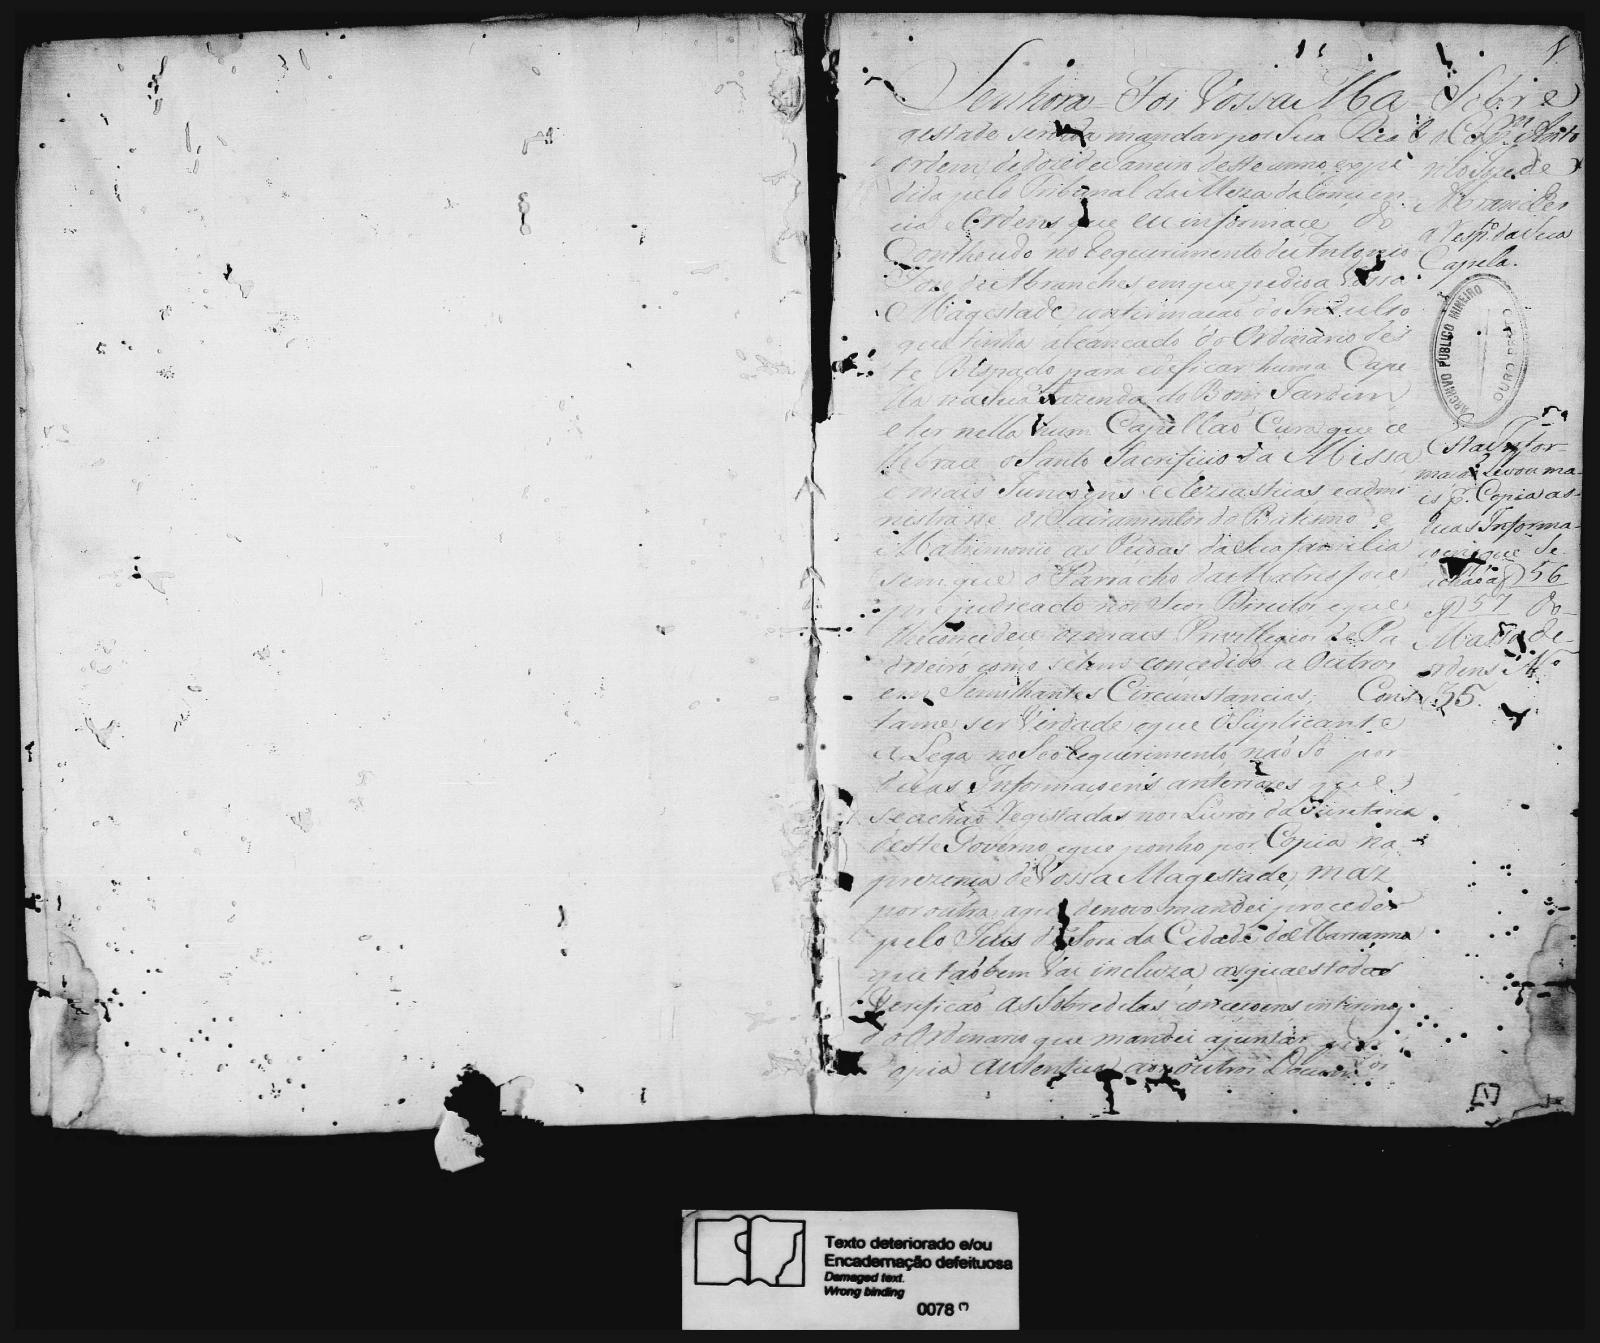 1
Senhora = Foi Vossa Ma
gestade servida mandar por Sua Real
ordem de doze de Janeiro deste anno expe
dida pelo Tribunal da Meza da Comcien
cia e Ordens que eu informace do
Contheudo no Requerimento de Antonio
Joze de Abranches, em que pedio a Vossa
Magestade confirmacaõ do Indulto
que tinha alcancado do Ordinario des
te Bispado para edeficar huma Cape
lla na Sua Fazenda do Bom Jardim
e ter nella hum Capellaõ Cura que ce
llebrace o Santo Sacrificio da Missa
e mais Funçoens ecleziasticas e admi
nistrasse os Sacramentos do Batismo e
Matrimonio as Peçoas da Sua familia
sem que o Parracho da Matris foce
prejudicado nos Seos Direitos e que
lhe concedece os mais Privillegios de Pa
droeiro como se tem concedido a Outros
em Semilhantes Circunstancias. Cons
tame ser Verdade o que o Suplicante
aLega no Seo Requerimento naõ Só por
duas Informaçoens anteriores que
se achaõ Regestadas nos Livros da Secretaria
deste Governo e que ponho por Copia na
prezenca de Vossa Magestade, maz
por outra a que de novo mandei proceder
pelo Juis de Fora da Cidade de Marianna
que taõbem Vai incluza, as quaes todas
Verificaõ as Sobreditas concecoens
do Ordinario que mandei ajuntar por
Copia autentica aos outros Docum.tos
Sobre
o Cap.m Anto
nio Joze de
Abranches
a resp.to da Sua
Capela.
ARCHIVO PUBLICO MINEIRO
OURO PRETO
Esta Infor-
macaõ Levou ma-
is p. Copia as
duas Informa-
coens que Se
achaõ a f 56
e f 57 do
Masso de
Ordens N.o
35.
[1]
Texto deteriorado e/ou
Encadernação defeituosa
Damaged text.
Wrong binding
0078 (*)